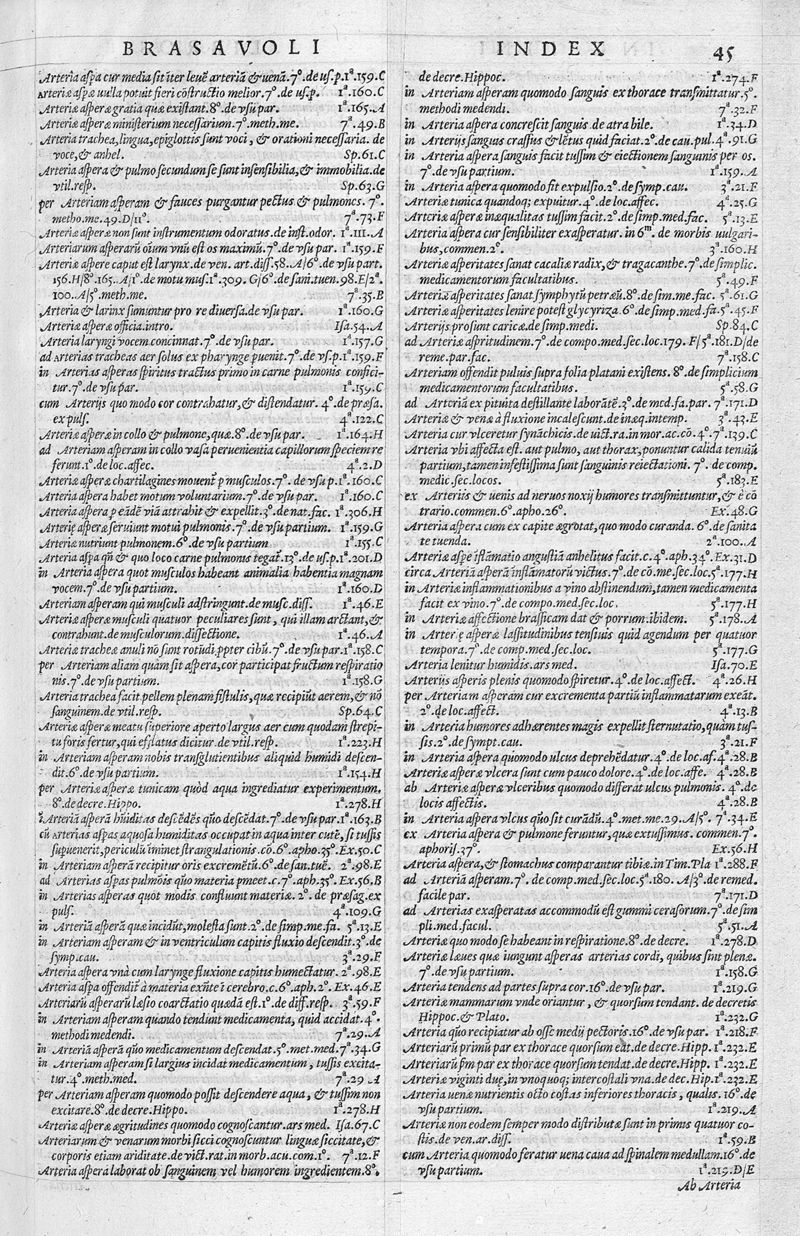 BRASAVOLI INDEX 45
Arteria aspa cur media sit iter leuẽ arteriā & uenā.7º.de us.p.1ª.159.C
Arteriæ aspæ nulla potuit fieri cõstructio melior.7º.de us.p. 1ª.160.C
Arteriæ asperæ gratia quæ existant.8º.de vsu par. 1ª.165.A
Arteriæ asperæ ministerium necessarium.7º.meth.me. 7ª.49.B
Arteria trachea, lingua, epiglottis sunt voci, & orationi necessaria. de
voce, & anhel. Sp.61.C
Arteria aspera & pulmo secundum se sunt insensibilia, & immobilia. de
vtil.resp. Sp.63.G
per Arteriam asperam & fauces purgantur pectus & pulmones. 7º.
metho.me.49.D/11º. 7ª.73.F
Arteriæ asperæ non sunt instrumentum odoratus.de inst.odor. 1ª.111.A
Arteriarum asperarũ oĩum vnũ est os maximũ.7º.de vsu par. 1ª.159.F
Arteriæ aspere caput est larynx.de ven. art.diss.58.A/6º.de vsu part.
156.H/8º.165.A/1º.de motu mus.1ª.309.G/6º.de sani.tuen.98.E/2ª.
100.A/5º.meth.me. 7ª.35.B
Arteria & larinx sumuntur pro re diuersa.de vsu par. 1ª.160.G
Arteriæ asperæ officia.intro. Isa.54.A
Arteria laryngi vocem concinnat.7º.de vsu par. 1ª.157.G
ad Arterias tracheas aer solus ex pharynge puenit.7º.de vs.p.1ª.159.F
in Arterias asperas spiritus tractus primo in carne pulmonis confici-
tur.7º.de vsu par. 1ª.159.C
cum Arterijs quo modo cor contrahatur, & distendatur. 4º.de præsa.
ex puls. 4ª.122.C
Arteriæ asperæ in collo & pulmone, quæ.8º.de vsu par. 1ª.164.H
ad Arteriam asperam in collo vasa peruenientia capillorum speciem re
ferunt.1º.de loc.affec. 4ª.2.D
Arteriæ asperæ chartilagines mouent p musculos.7º. de vsu p.1ª.160.C
Arteria aspera habet motum voluntarium.7º.de vsu par. 1ª.160.C
Arteria aspera p eãdẽ viã attrahit & expellit.3º.de nat.fac. 1ª.306.H
Arterię asperæ seruiunt motui pulmonis.7º.de vsu partium. 1ª.159.G
Arteriæ nutriunt pulmonem.6º.de vsu partium 1ª.155.C
Arteria aspa qñ & quo loco carne pulmonus tegat.13º.de us.p.1ª.201.D
in Arteria aspera quot musculos habeant animalia habentia magnam
vocem.7º.de vsu partium. 1ª.160.D
Arteriam asperam qui musculi adstringunt.de musc.diss. 1ª.46.E
Arteriæ asperæ musculi quatuor peculiares sunt, qui illam arctant, &
contrabunt.de musculorum.dissectione. 1ª.46.A
Arteriæ tracheæ anuli nõ sunt rotũdi.ppter cibũ.7º.de vsu par.1ª.158.C
per Arteriam aliam quàm sit aspera, cor participat fructum respiratio
nis.7º.de vsu partium. 1ª.158.G
Arteria trachea facit pellem plenam fistulis, quæ recipiũt aerem, & nõ
sanguinem.de vtil.resp. Sp.64.C
Arteriæ asperæ meatu superiore aperto largus aer cum quodam strepi-
tu foris fertur, qui efflatus dicitur.de vtil.resp. 1ª.223.H
in Arteriam asperam nobis transglutientibus aliquid humidi descen-
dit.6º.de vsu partium. 1ª.154.H
per Arteriæ asperæ tunicam quòd aqua ingrediatur experimentum.
8º.de decre.Hippo. 1ª.278.H
ĩ Arteriã asperã hũiditas descẽdẽs quõ descẽdat.7º.de vsu par.1ª.163.B
cũ arterias aspas, aquosa humiditas occupat in aqua inter cutẽ, si tussis
supuenerit, periculũ iminet strangulationis.cõ.6º.apho.35º.Ex.50.C
in Arteriam asperã recipitur oris excremẽtũ.6º.de san.tuẽ. 2ª.98.E
ad Arterias aspas pulmõis quõ materia pmeet.c.7º.aph.35º. Ex.56.B
in Arterias asperas quot modis confluunt materiæ. 2º. de præsag.ex
puls. 4ª.109.G
in Arteriã asperã quæ incidũt, molesta sunt.2º.de simp.me fa. 5ª.13.E
in Arteriam asperam & in ventriculum capitis fluxio descendit.3º.de
symp.cau. 3ª.29.F
Arteria aspera vnà cum larynge fluxione capitis humectatur. 2ª.98.E
Arteria aspa offendit̃ à materia exñte ĩ cerebro.c.6º.aph.2º. Ex.46.E
Arteriarũ asperarũ læsio coarctatio quædã est.1º.de diff.resp. 3ª.59.F
in Arteriam asperam quando tendunt medicamenta, quid accidat.4º.
methodi medendi. 7ª.29.A
in Arteriã asperã quõ medicamentum descendat.5º.met.med.7ª.34.G
in Arteriam asperam si largius incidat medicamentum, tussis excita-
tur.4º.meth.med. 7ª.29.A
per Arteriam asperam quomodo possit descendere aqua, & tussim non
excitare.8º.de decre.Hippo. 1ª.278.H
Arteriæ asperæ ægritudines quomodo cognoscantur.ars med. Isa.67.C
Arteriarum & venarum morbi sicci cognoscuntur linguæ siccitate, &
corporis etiam ariditate.de vict.rat.in morb.acu.com.1º. 7ª.12.F
Arteria aspera laborat ob sanguinem, vel humorem ingredientem.8º.
de decre.Hippoc. 1ª.274.F
in Arteriam asperam quomodo sanguis ex thorace transmittatur.5º.
methodi medendi. 7ª.32.F
in Arteria aspera concrescit sanguis de atra bile. 1ª.34.D
in Arterijs sanguis crassus & lẽtus quid faciat.2º.de cau.pul.4ª.91.G
in Arteria aspera sanguis facit tussim & eiectionem sanguinis per os.
7º.de vsu partium. 1ª.159.A
in Arteria aspera quomodo fit expulsio.2º.de symp.cau. 3ª.21.F
Arteriæ tunica quandoq; expuitur.4º.de loc.affec. 4ª.25.G
Arteriæ asperæ inæqualitas tussim facit.2º.de simp.med.fac. 5ª.13.E
Arteria aspera cur sensibiliter exasperatur. in 6m. de morbis uulgari-
bus, commen.2º. 3ª.160.H
Arteriæ asperitates sanat cacaliæ radix, & tragacanthe.7º.de simplic.
medicamentorum facultatibus. 5ª.49.F
Arteriæ asperitates sanat symphytũ petræũ.8º.de sim.me.fac. 5ª.61.G
Arteriæ asperitates lenire potest glycyriza.6º.de simp.med.fa.5ª.45.F
Arterijs prosunt caricæ.de simp.medi. Sp.84.C
ad Arteriæ aspritudinem.7º.de compo.med.sec.loc.179. F/5ª.181.D/de
reme.par.fac. 7ª.158.C
Arteriam offendit puluis supra folia platani existens. 8º.de simplicium
medicamentorum facultatibus. 5ª.58.G
ad Arteriã ex pituita destillante laborãtẽ.3º.de med.fa.par. 7ª.171.D
Arteriæ & venæ à fluxione incalescunt.de inæq.intemp. 3ª.43.E
Arteria cur vlceretur synãchicis.de uict.ra.in mor.ac.cõ.4º.7ª.139.C
Arteria vbi affecta est. aut pulmo, aut thorax, ponuntur calida tenuiũ
partium, tamen infestissima sunt sanguinis reiectationi. 7º. de comp.
medic.sec.locos. 5ª.183.E
ex Arterijs & uenis ad neruos noxij humores transmittuntur, & è cõ
trario.commen.6º.apho.26º. Ex.48.G
Arteria aspera cum ex capite ægrotat, quo modo curanda. 6º.de sanita
te tuenda. 2ª.100.A
Arteriæ aspe ĩflãmatio angustiã anhelitus facit.c.4º.aph.34º. Ex.31.D
circa Arteriã asperã inflamatorũ victus.7º.de cõ.me.sec.loc.5ª.177.H
in Arteriæ inflammationibus a vino abstinendum, tamen medicamenta
facit ex vino.7º.de compo.med.sec.loc. 5ª.177.H
in Arteriæ affectione brassicam dat & porrum.ibidem. 5ª.178.A
in Arterię asperæ lassitudinibus tensiuis quid agendum per quatuor
tempora.7º.de comp.med.sec.loc. 5ª.177.G
Arteria lenitur humidis.ars med. Isa.70.E
Arterijs asperis plenis quomodo spiretur.4º.de loc.affect. 4ª.26.H
per Arteriam asperam cur excrementa partiũ inflammatarum exeãt.
2º.de loc.affect. 4ª.13.B
in Arteria humores adhærentes magis expellit sternutatio, quàm tus-
sis.2º.de sympt.cau. 3ª.21.F
in Arteria aspera quomodo ulcus deprehẽdatur.4º.de loc.af.4ª.28.B
Arteriæ asperæ vlcera sunt cum pauco dolore.4º.de loc.affe. 4ª.28.B
ab Arteriæ asperæ vlceribus quomodo differat ulcus pulmonis. 4º.de
locis affectis. 4ª.28.B
in Arteria aspera vlcus quõ sit curãdũ.4º.met.me.29.A/5º. 7ª.34.E
ex Arteria aspera & pulmone feruntur, quæ extussimus. commen.7º.
aphoris.37º. Ex.56.H
Arteria aspera, & stomachus comparantur tibiæ.in Tim.Pla 1ª.288.F
ad Arteriã asperam.7º. de comp.med.sec.loc.5ª.180. A/3º.de remed.
facile par. 7ª.171.D
ad Arterias exasperatas accommodũ est gummi cerasorum.7º.de sim
pli.med.facul. 5ª.51.A
Arteriæ quo modo se habeant in respiratione.8º.de decre. 1ª.278.D
Arteriæ læues quæ iungunt asperas arterias cordi, quibus sint plenæ.
7º.de vsu partium. 1ª.158.G
Arteria tendens ad partes supra cor.16º.de vsu par. 1ª.219.G
Arteriæ mammarum vnde oriantur, & quorsum tendant. de decretis
Hippoc.& Plato. 1ª.232.G
Arteria quõ recipiatur ab osse medij pectoris.16º.de vsu par. 1ª.218.F
Arteriarũ primũ par ex thorace quorsum eãt.de decre.Hipp. 1ª.232.E
Arteriarũ sm par ex thorace quorsum tendat.de decre.Hipp. 1ª.232.E
Arteriæ viginti duę, in vnoquoq; intercostali vna.de dec.Hip.1ª.232.E
Arteria uenæ nutrientis octo costas inferiores thoracis, qualis. 16º.de
vsu partium. 1ª.219.A
Arteriæ non eodem semper modo distributæ sunt in primis quatuor co-
stis.de ven.ar.diss. 1ª.59.B
cum Arteria quomodo feratur uena caua ad spinalem medullam.16º.de
vsu partium. 1ª.219.D/E
Ab Arteria